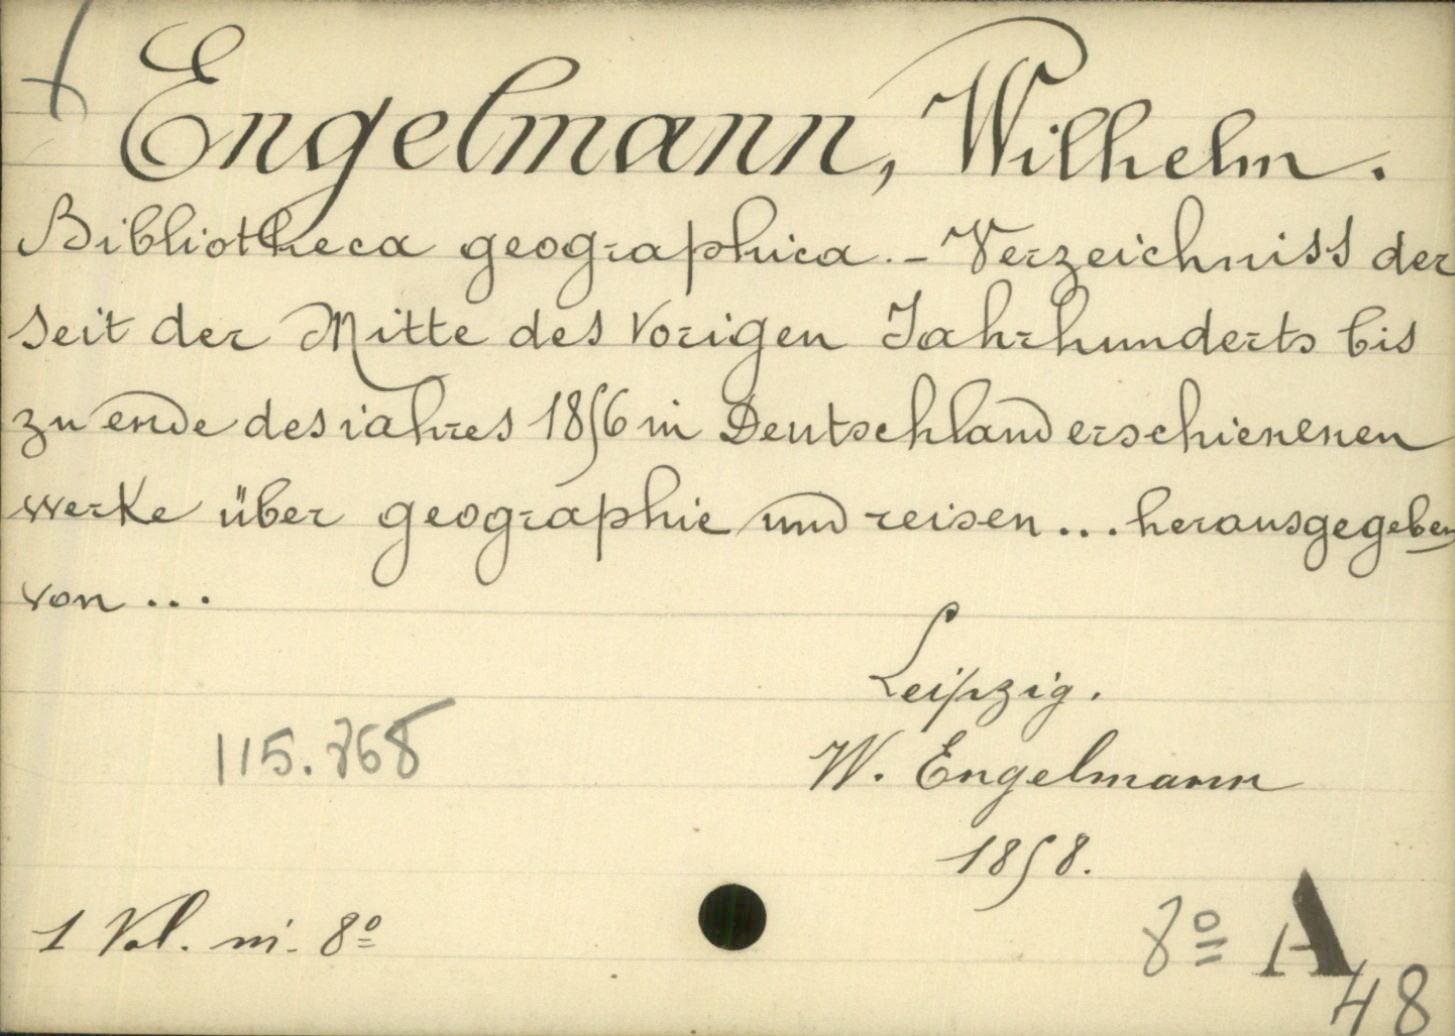 Engelmann, Wilhelm.
Bibliotheca geographica. - Verzeichniss der
seit der Mitte des vorigen Jahrhunderts bis
zu ende des iahres 1856 in Deutschland erschienenen
werke über geographie und reisen ... herausgegeben
von ...
Leipzig.
115.768
W. Engelmann
1858.
1 Vol. in-8º
8º A
48